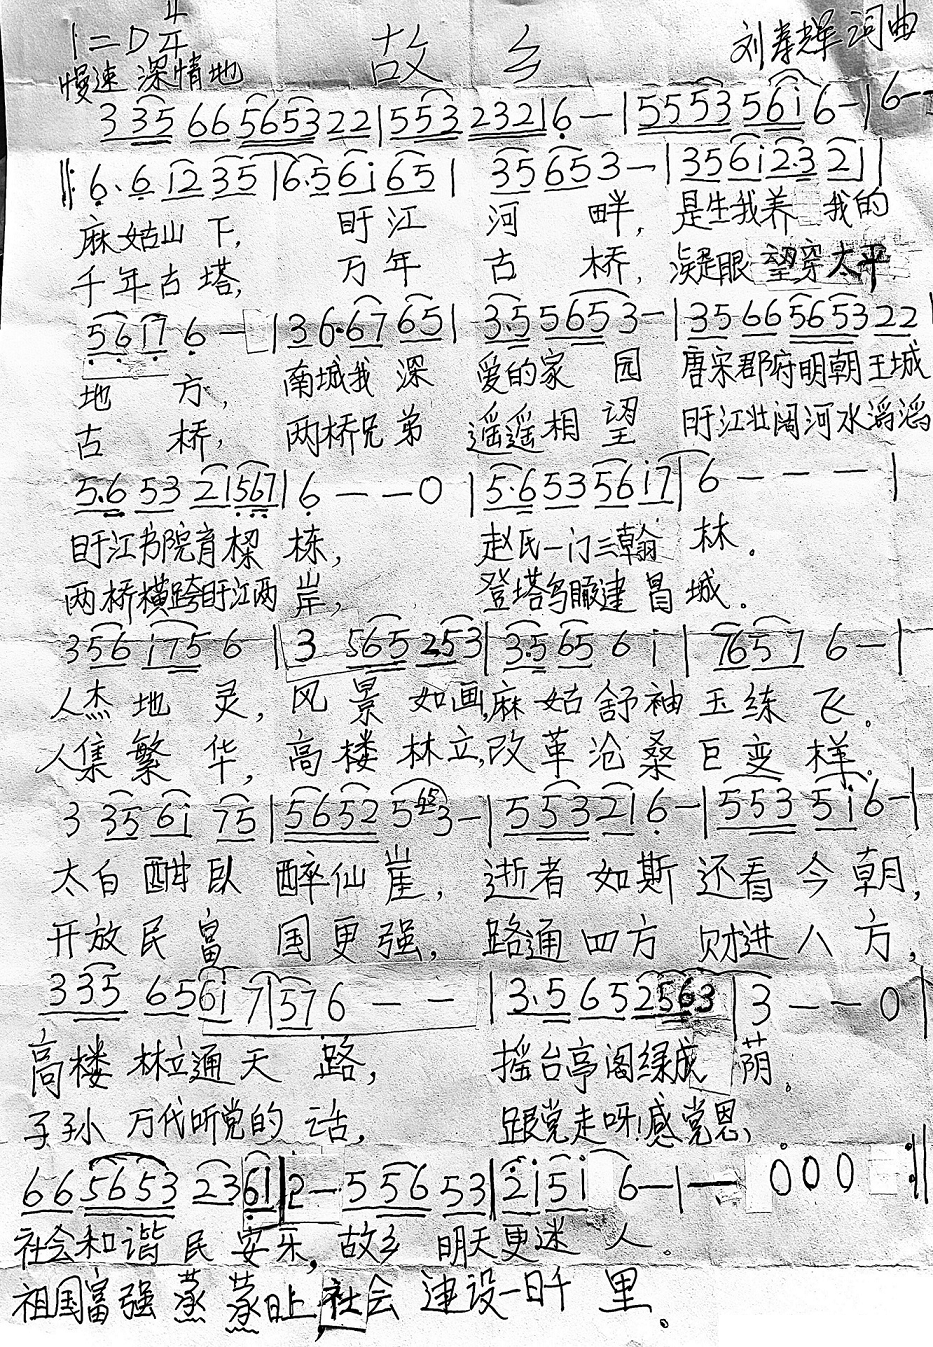 1=D 4/4
故乡
刘寿辉 词曲
慢速 深情地
3 35 66 5653 22 | 553 232 | 6 — | 5553 56i 6 — | 6 — —
‖: 6·6 i2 35 | 6·5 6i 65 | 35 65 3 — | 356i 2·3 21 |
麻姑山下, 盱江河畔, 是生我养 我的
千年古塔, 万年古桥, 凝眼望穿太平
56 i7 6 — | 36·67 65 | 3·5 565 3 — | 35 66 5653 22 |
地方, 南城我深爱的家园 唐宋郡府明朝王城
古桥, 两桥兄弟遥遥相望 盱江壮阔河水滔滔
5·6 53 21 567 | 6 — — 0 | 5·6 53 56 i7 | 6 — — — |
盱江书院育樑栋, 赵氏一门三翰林。
两桥横跨盱江两岸, 登塔鸟瞰建昌城。
356 i75 6 | 3 565 253 | 3·5 65 6 i | 7657 6 — |
人杰地灵, 风景如画,麻姑舒袖玉练飞。
人集繁华, 高楼林立,改革沧桑巨变样。
3 35 6i 75 | 5652 5 3 — | 553 21 6 — | 553 5i 6 — |
太白酣卧醉仙崖, 逝者如斯还看今朝,
开放民富国更强, 路通四方 财进八方,
335 65 6i 7 | 57 6 — — | 3·5 65 2563 | 3 — — 0 |
高楼林立通天路, 摇台亭阁绿成荫。
子孙万代听党的话, 跟党走呀!感党恩,
66 5653 23 61 | 2 — 5 56 53 | 2i 5i 6 — | — 0 0 0 :‖
社会和谐民安乐, 故乡明天更迷人。
祖国富强蒸蒸日上,社会建设一日千里。